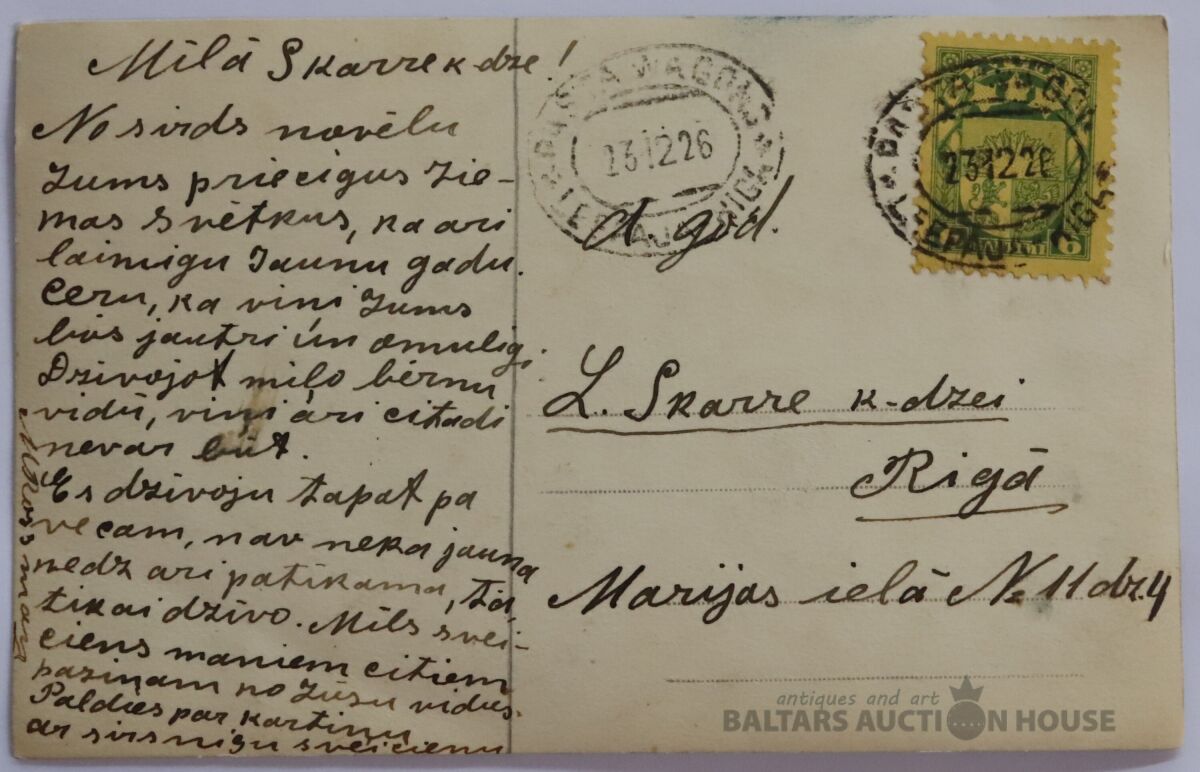 Milā Skarre k-dze!
No sirds novēlu
Jums priecigus Zie-
mas svētkus, ka ari
laimigu Jaunu gadu.
Ceru, ka viņi Jums
būs jautri un omuligi
Dzivojot miļo bērnu
vidū, viņi ari citadi
nevar būt.
Es dzivoju tapat pa
vecam, nav neka jauna
nedz ari patikama, tā
tikai dzivo. Mīļš svei-
ciens maniem citiem
paziņam no Jūsu vidus.
Paldies par kartiņu
ar sirsnigu sveicienu
PASTA WAGONS
23 12 26
LEEPAJA RIGA
PASTA WAGON
23 12 26
LEEPAJA RIGA
6
d. god.
L. Skarre k-dzei
Rigā
Marijas ielā № 11 dz. 4
antiques and art
BALTARS AUCTION HOUSE